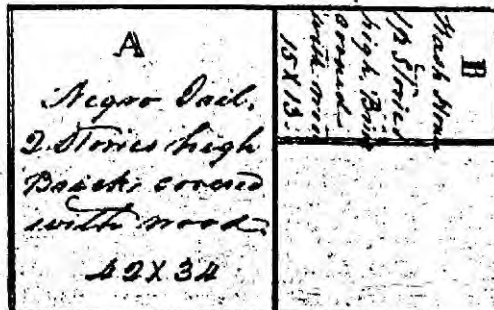 A
Negro Jail.
2 Stories high
Brick, covered
with wood.
42 X 34
B
Wash House
1½ Stories
high, Brick
covered
with wood
15 X 13.